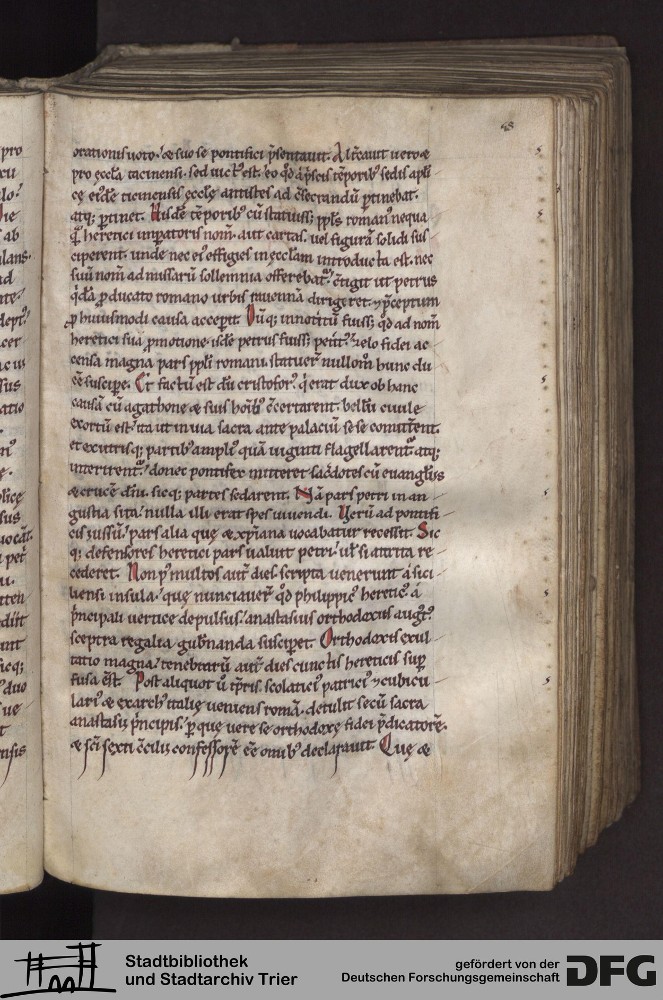 48
orationis uoto. & suo se pontifici p̄sentauit. Altcauit uero &
pro ęccła ticinensi. sed uict᷒ est. eo qd̓ a p̓scis tēporib᷒ sedis apli
cę eiusdē ticinensis ęccłę antistes ad c̄secrandū ꝑtinebat.
atq; ꝑtinet. Hisdē tēporib᷒ cū statuiss; ppl̄s roman᷒ nequa
q̄ heretici imꝑatoris nom̄. aut cartas. uel figurā solidi sus
ciperent. unde nec ei᷒ effigies in ęccłam introducta est. nec
suū nom̄ ad missarū sollemnia offerebat᷒. c̄tigit ut petrus
qdā ꝓ ducato romano urbis rauennā dirigeret. ⁊ p̄ceptum
ꝓ huiusmodi causa acceꝑit. Cūq; innotitū fuiss; qd̓ ad nom̄
heretici sua ꝓmotione. isdē petrus fuiss; zelo fidei ac
censa magna pars ppłi romani. statuer̄ nullom̄ hunc du
cē suscipe. Et factū est dū cristofor᷒. q̓ erat dux ob hanc
causā cū agathone & suis hoīb᷒ c̄certarent. bellū ciuile
exortū est. ita ut in uia sacra ante palaciū se se comitt̄ent.
et ex utrisq; partib᷒ ampli᷒ quā uiginti flagellarent᷒. atq;
interirent᷒. donec pontifex mitteret sac̄dotes cū euangłiis
& crucē dn̄i. sicq; partes sedarent. Nā pars petri in an
gustia sita. nulla illi erat spes uiuendi. Verū ad pontifi
cis iussū. pars alia que & xp̄iana uocabatur recessit. Sic
q; defensores heretici pars ualuit petri. ut si attrita re
cederet. Non p᷒ multos aut̄ dies. scripta uenerunt a sici
liensi insula. quę nunciauer̄ qd̓ philippic᷒ heretic᷒ a
p̓ncipali uertice depulsus. anastasius orthodoxus aug᷒.
sceptra regalia gub̄nanda susciꝑet. Orthodoxis exul
tatio magna. tenebrarū aut̄ dies cunctis hereticis suꝑ
fusa ē̄st. Post aliquot ū tp̄ris. scolatici᷒ patrici᷒ ⁊ cubicu
lari᷒ & exarch᷒ italię ueniens romā. detulit secū sacra
anastasii p̓ncipis. ꝑ que uere se orthodoxę fidei p̄dicatorē.
& sc̄i sexti c̄cilii confessorē eē omib᷒ declarauit. Quę &
Stadtbibliothek
und Stadtarchiv Trier
gefördert von der
Deutschen Forschungsgemeinschaft
DFG